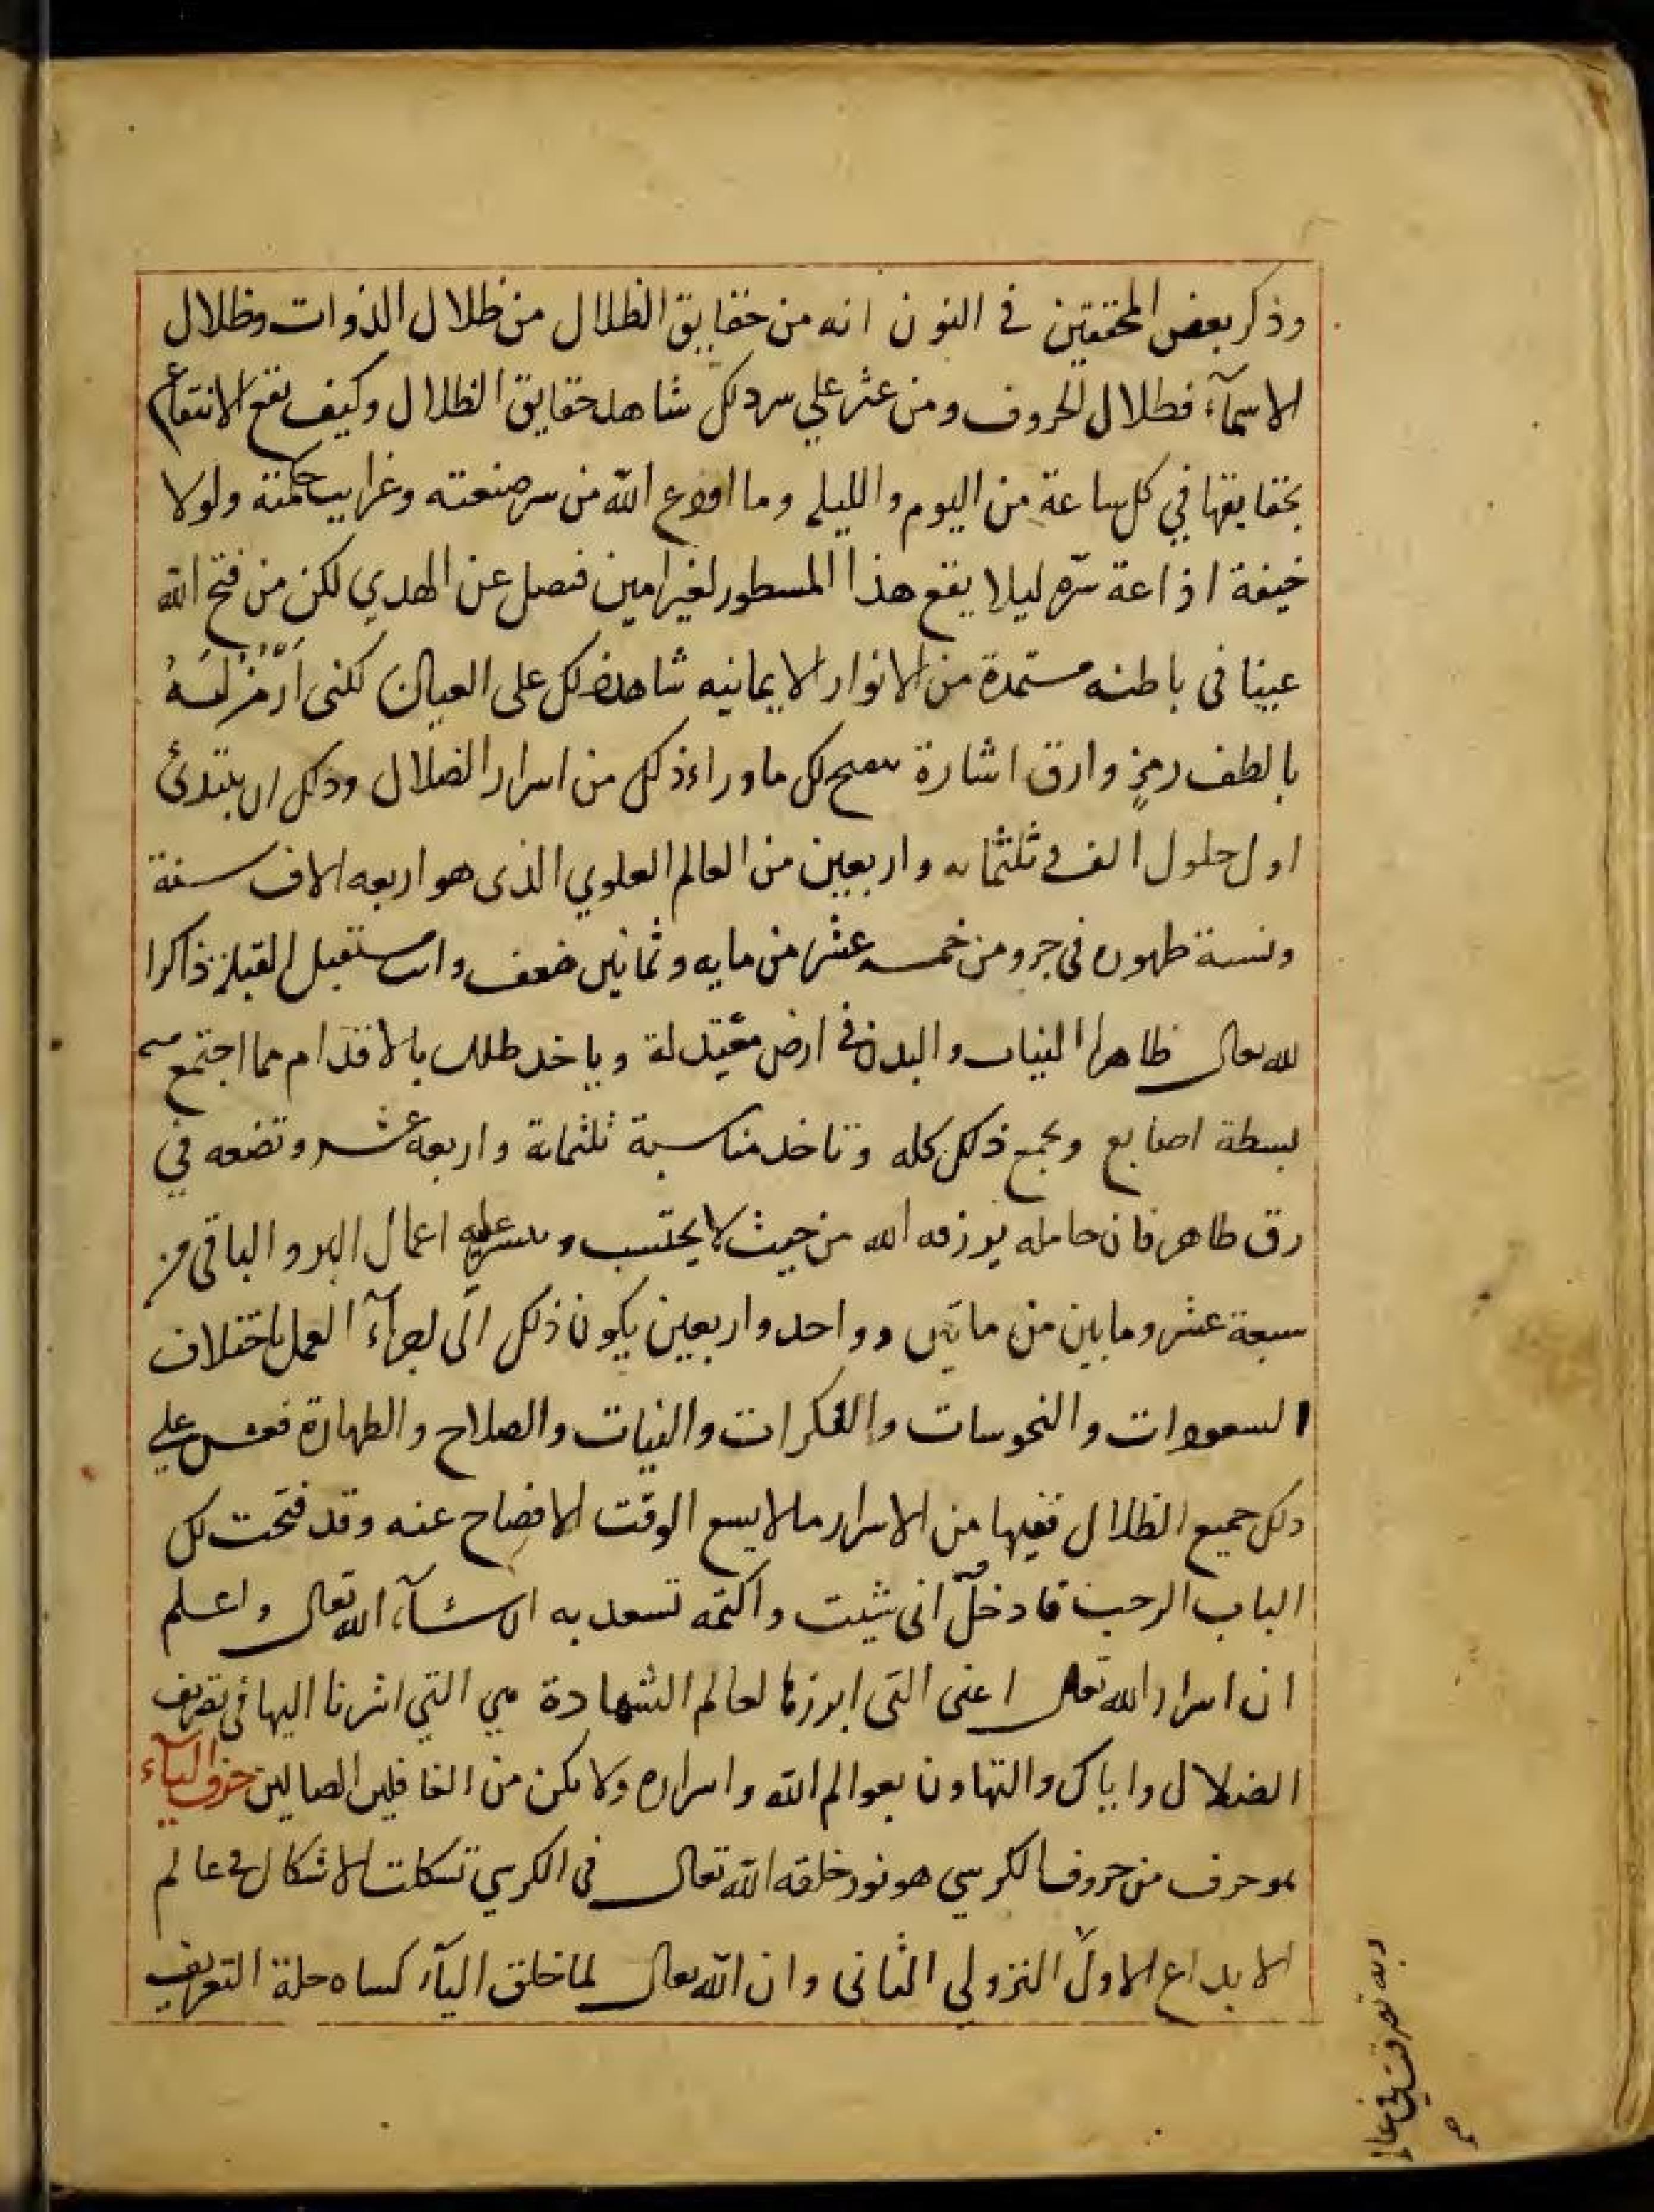 وذكر بعض المحققين في النون انه من حقايق الظلال من ظلال الذوات وظلال
الاسمآء فظلال الحروف ومن عثر علي سر ذلك شاهد حقايق الظلال وكيف تقع الانتفاع
بحقايقها في كل ساعة من اليوم والليله وما اودع الله من سر صنعته وغرايب حكمته ولولا
خيفة اذاعة سره ليلا يقع هذا المسطور لغير امين فنصل عن الهدي لكن من فتح الله
عينا في باطنه مستمدة من الانوار الايمانيه شاهد ذلك على العيان لكنى ارمز لسه
بالطف رمز وارق اشارة لك ماوراء ذلك من اسرار الضلال وذلك ان يبتدئ
اول حلول الف و ثلثمايه واربعين من العالم العلوي الذى هو اربعه الاف سنة
ونسبة ظهوره فى جزو من خمسه عشر من مايه وثمانين ضعف وانت مستقبل القبله ذاكرا
لله تعالى ظاهرا الثياب والبدن في ارض معتدلة وياخد ظلك بالاقدام مما اجتمع
لبسطة اصابع وتجمع ذلك كله وتاخد مناسبة ثلثماية واربعه عشر وتضعه في
رق طاهر فان حامله يرزقه الله من حيث لا يحتسب و عليه اعمال البر والباقي من
سبعة عشر ومابين من مايتين وواحد واربعين يكون ذلك الى اجرآء العمل باختلاف
السعودات والنحوسات والفكرات والنيات والصلاح والطهارة فقس علي
ذلك جميع الظلال ففيها من الاسرار ما لا يسع الوقت الافضاح عنه وقد فتحت لك
الباب الرحب فادخل انى شيت واكتمه تسعد به ان شآء الله تعالى واعلم
ان اسرار الله تعالى اعنى التى ابرزها لعالم الشهادة هي التي اشرنا اليها في تصريف
الضلال واياك والتهاون بعوالم الله واسراره ولا تكن من الغافلين الضالين حرف اليآء
هو حرف من حروف الكرسي هو نور خلقه الله تعالى فى الكرسي تشكلت الاشكال في عالم
الابداع الاول النزولي الثانى وان الله تعالى لما خلق اليآء كساه حلة التعريف
وبه تعرفت في عالم